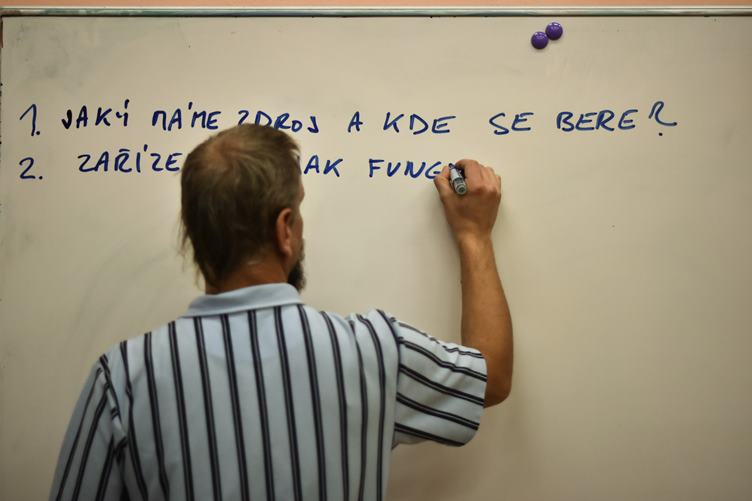 1. JAKÝ MÁME ZDROJ A KDE SE BERE?
2. ZAŘÍZE JAK FUNG